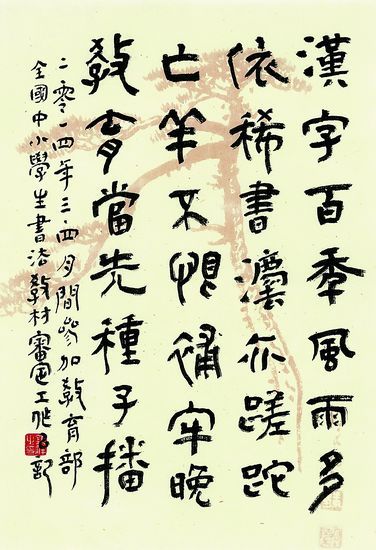 漢字百年風雨多
依稀書灋亦蹉跎
亡羊不惧補牢晚
教育當先種子播
二零一四年三、四月間參加教育部
全國中小學生書法教材審定工作記